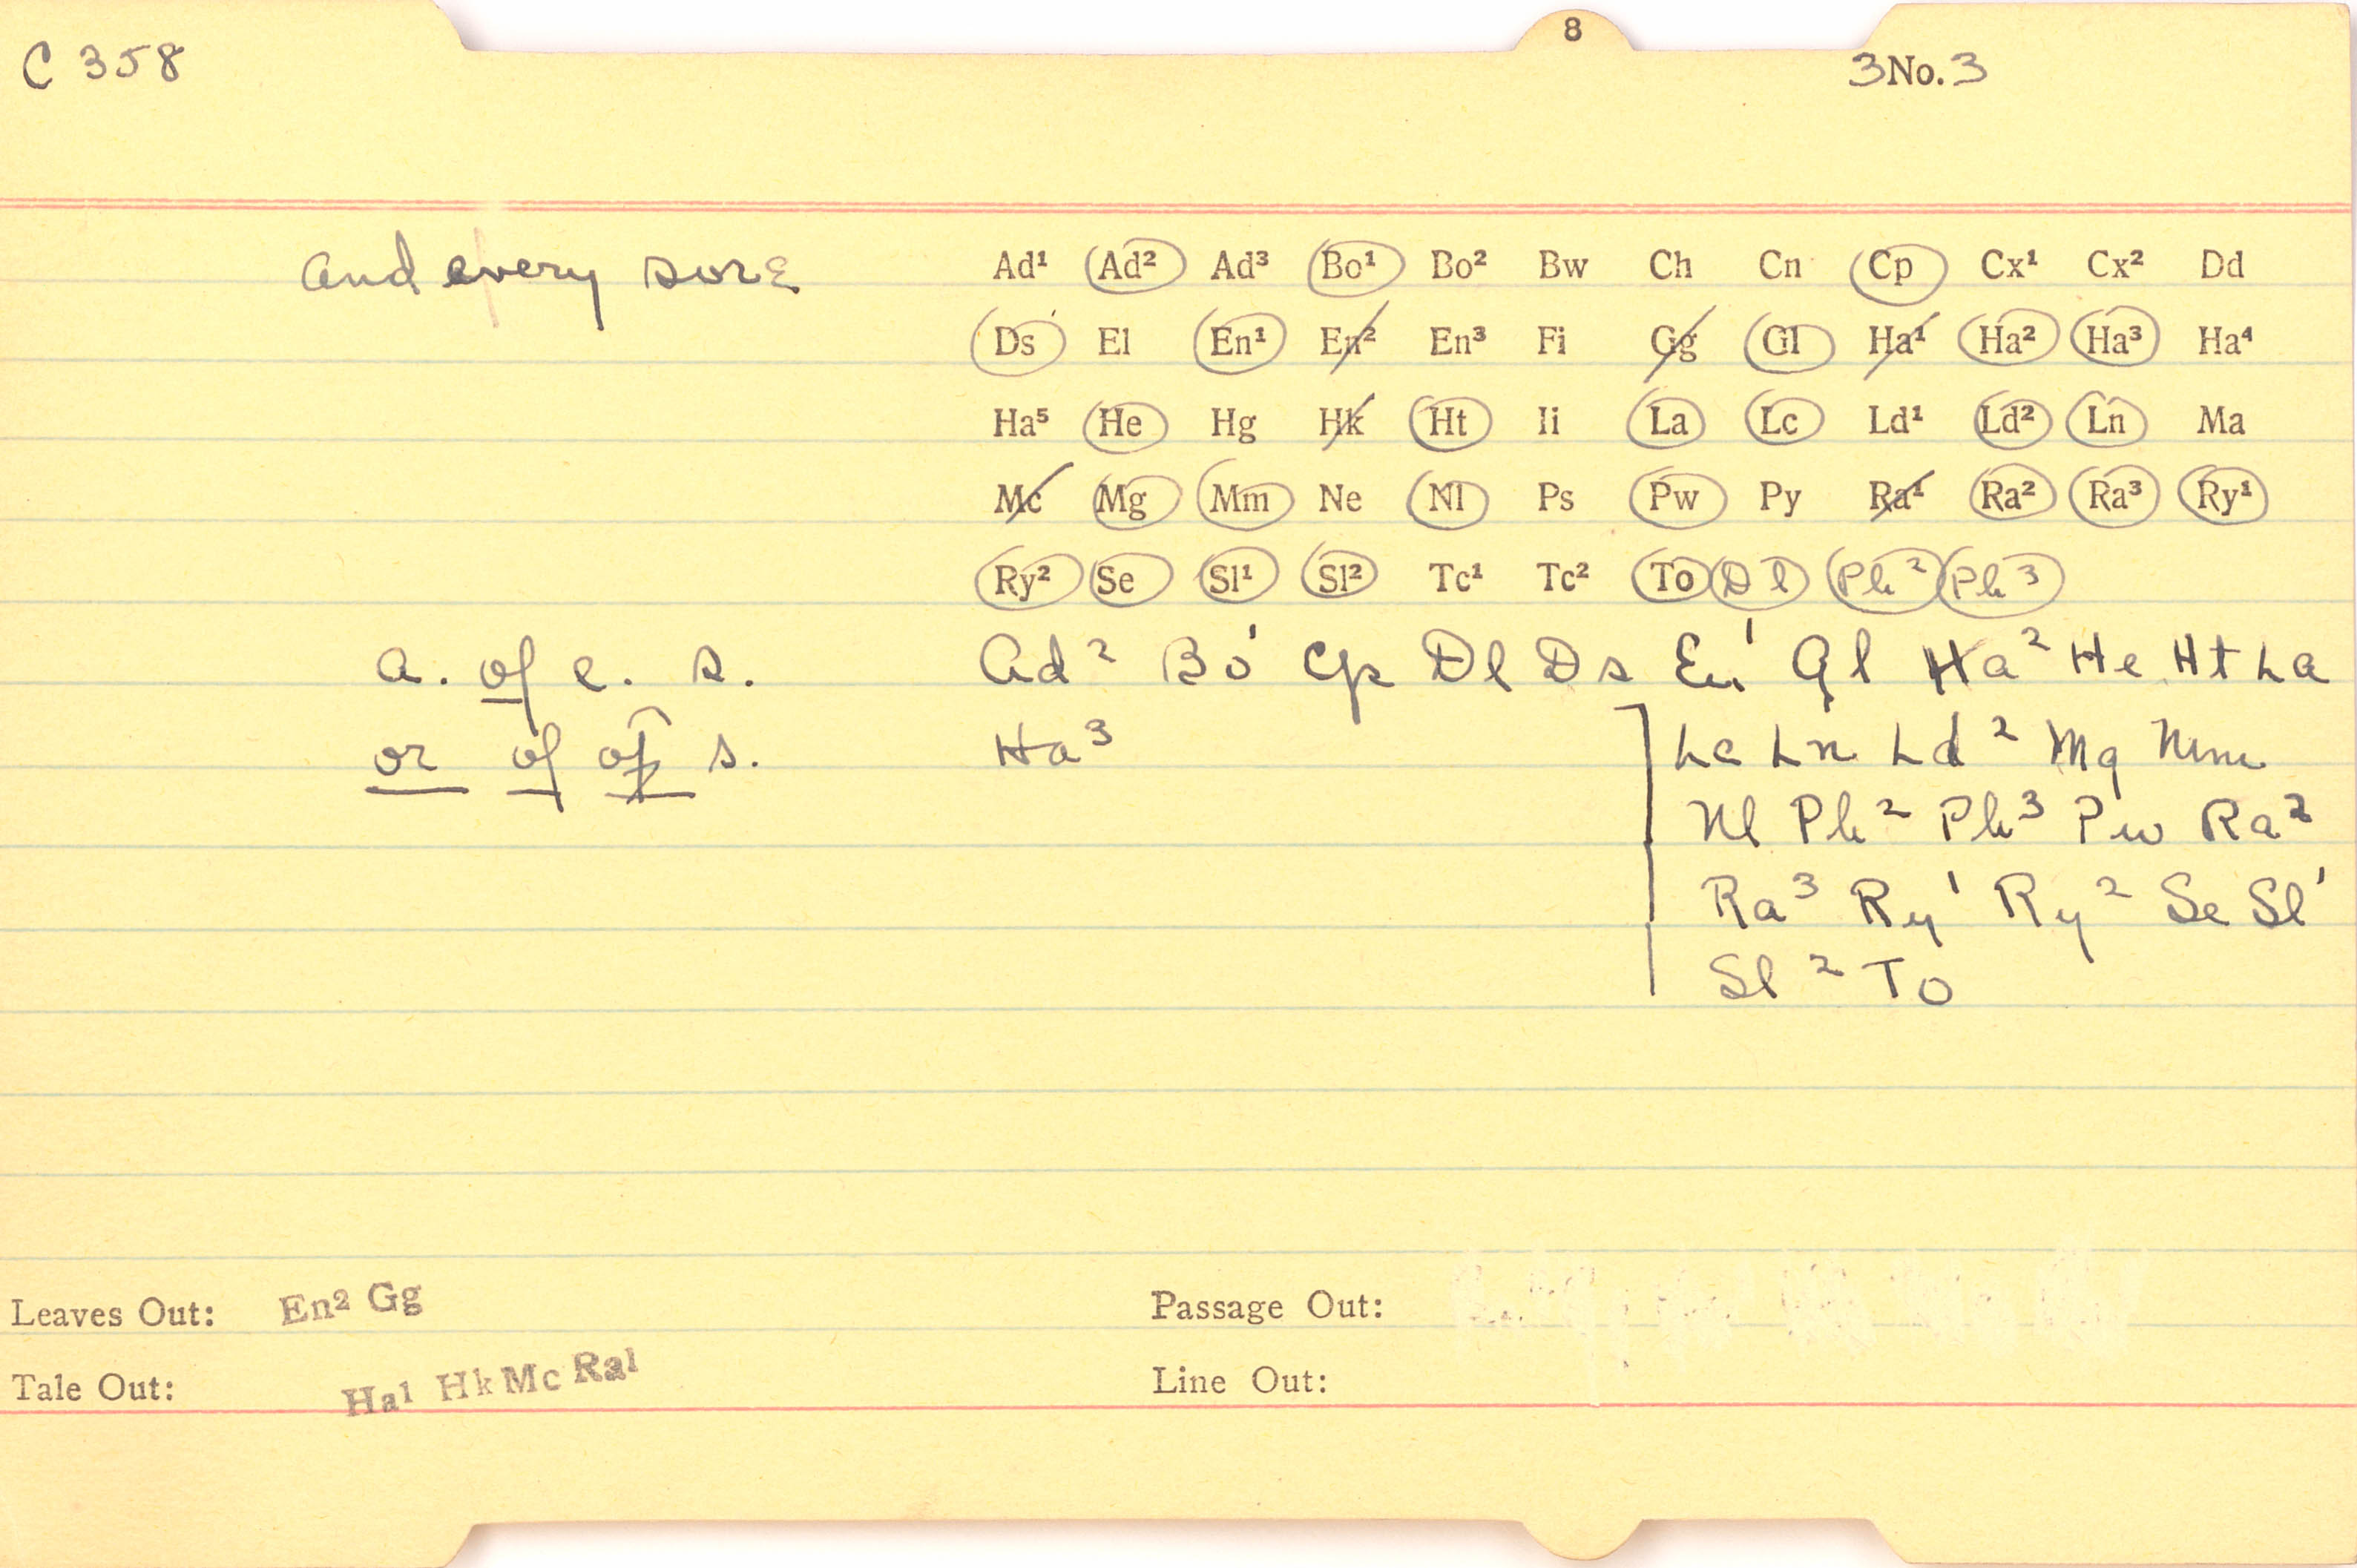 8
C 358
3No.3
and every sore Ad¹ Ad² Ad³ Bo¹ Bo² Bw Ch Cn Cp Cx¹ Cx² Dd
Ds El En¹ En² En³ Fi Gg Gl Ha¹ Ha² Ha³ Ha⁴
Ha⁵ He Hg Hk Ht Ii La Lc Ld¹ Ld² Ln Ma
Mc Mg Mm Ne Nl Ps Pw Py Ra¹ Ra² Ra³ Ry¹
Ry² Se Sl¹ Sl² Tc¹ Tc² To Dl Ph² Ph³
a. of e. s. Ad² Bo¹ Cp Dl Ds En¹ Gl Ha² He Ht La
or of s. Ha³ ] Lc Ln Ld² Mg Mm
Nl Ph² Ph³ Pw Ra²
Ra³ Ry¹ Ry² Se Sl¹
Sl² To
Leaves Out: En² Gg Passage Out:
Tale Out: Ha¹ Hk Mc Ra¹ Line Out: